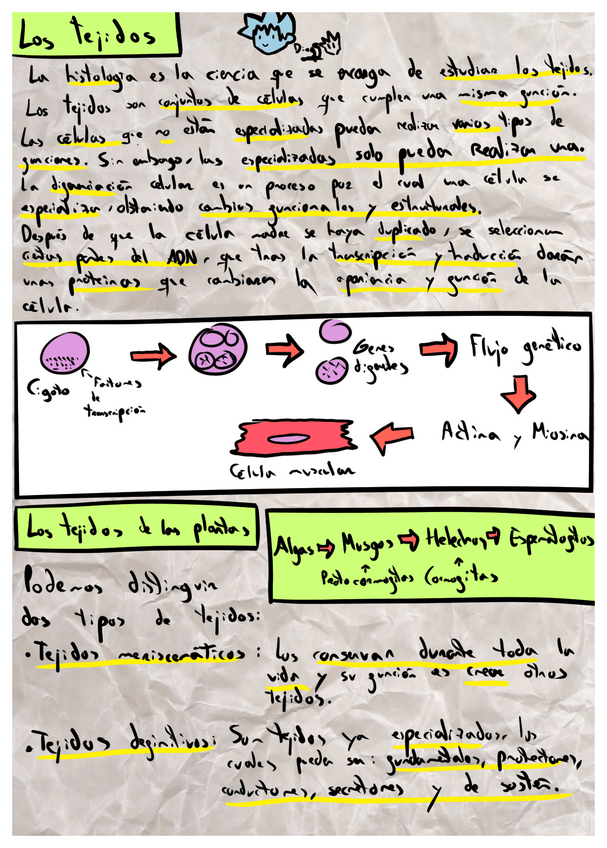 Los tejidos
Diego
La histología es la ciencia que se encarga de estudiar los tejidos.
Los tejidos son conjuntos de células que cumplen una misma función.
Las células que no están especializadas pueden realizar varios tipos de
funciones. Sin embargo, las especializadas solo pueden realizar una.
La diferenciación celular es un proceso por el cual una célula se
especializa, obteniendo cambios funcionales y estructurales.
Después de que la célula madre se haya duplicado, se seleccionan
ciertas partes del ADN, que tras la transcripción y traducción darán
unas proteínas que cambiaran la apariencia y función de la
célula.
Cigoto
Factores
de
transcripción
Genes
diferentes
Flujo genético
Actina y Miosina
Celula muscular
Los tejidos de las plantas
Algas Musgos Helechos Espermatofitas
Protocormofitas Cormofitas
Podemos distinguir
dos tipos de tejidos:
• Tejidos merisemáticos: Los conservan durante toda la
vida y su función es crear otros
tejidos.
• Tejidos definitivos: Son tejidos ya especializados, los
cuales pueden ser: fundamentales, protectores,
conductores, secretores y de sostén.